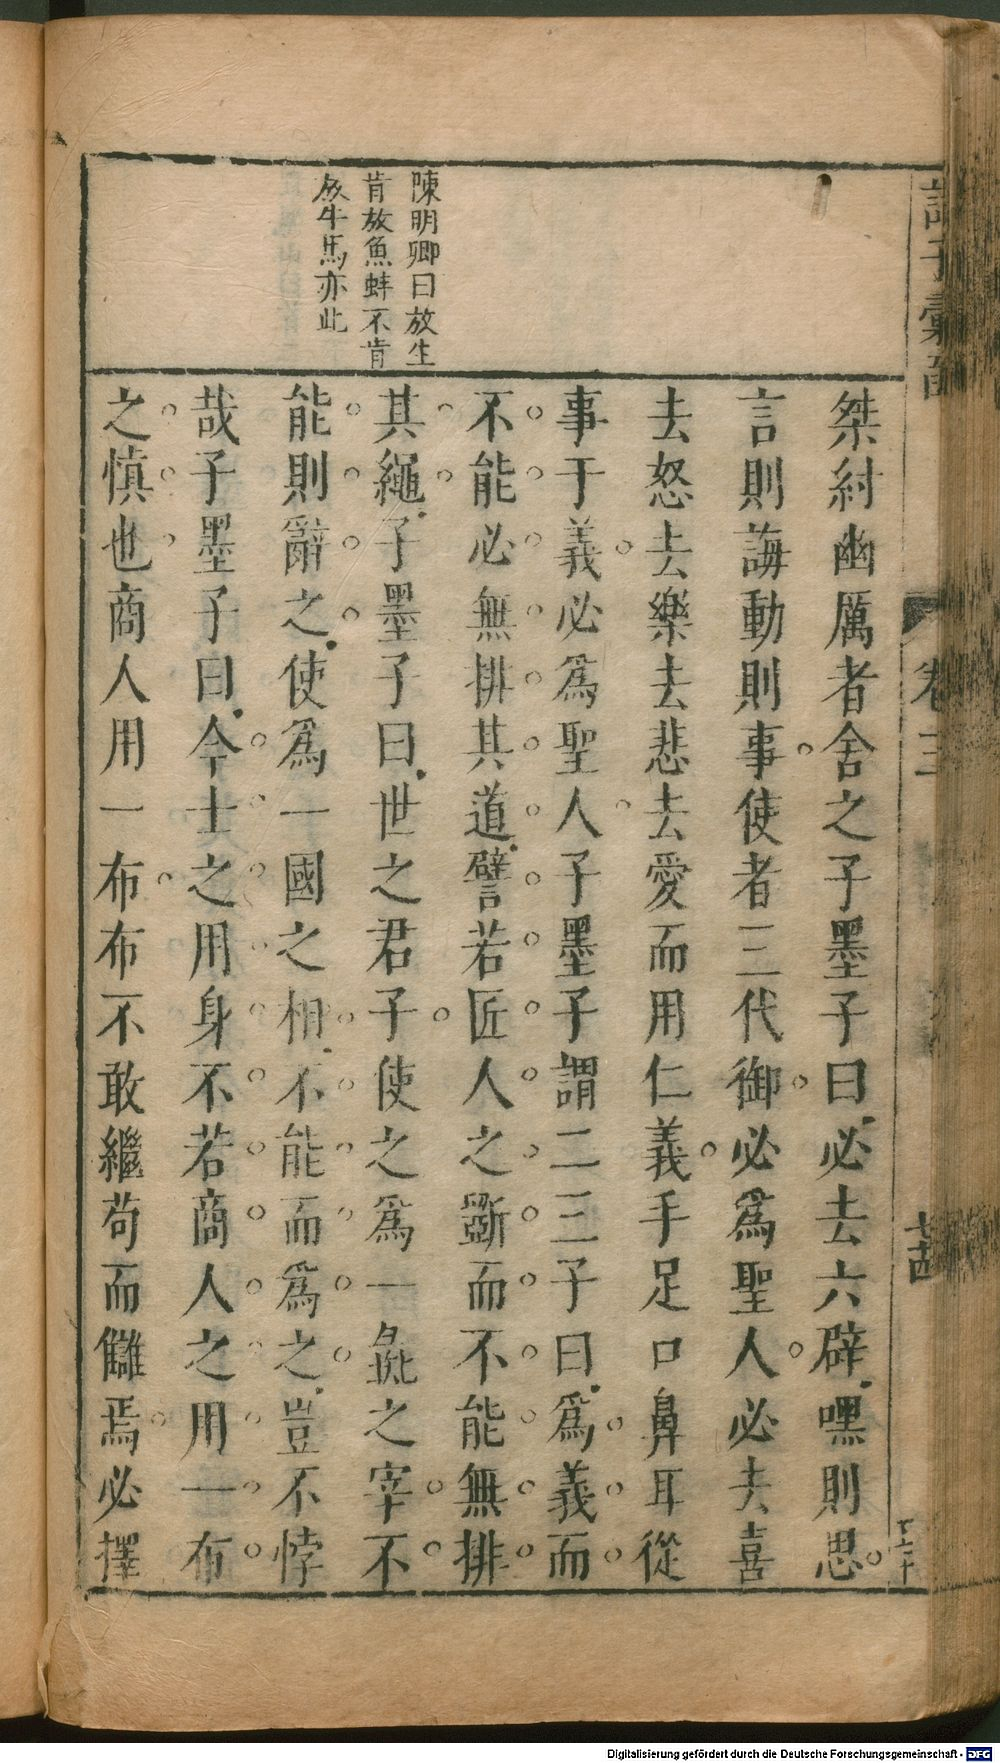 諸子彙函
卷三
陳明卿曰放生
肯放魚蚌不肯
放牛馬亦此
桀紂幽厲者舍之子墨子曰必去六辟嘿則思
言則誨動則事使者三代御必爲聖人必去喜
去怒去樂去悲去愛而用仁義手足口鼻耳從
事于義必爲聖人子墨子謂二三子曰爲義而
不能必無排其道譬若匠人之斵而不能無排
其繩子墨子曰世之君子使之爲一彘之宰不
能則辭之使爲一國之相不能而爲之豈不悖
哉子墨子曰今士之用身不若商人之用一布
之慎也商人用一布布不敢繼苟而讎焉必擇
Digitalisierung gefördert durch die Deutsche Forschungsgemeinschaft - DFG